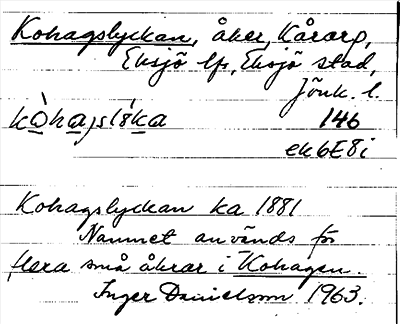 Kohagslyckan, åker, Kårarp,
Eksjö lfs, Eksjö stad,
Jönk. l.
kòhagslỳka 146
ek6E8i
Kohagslyckan ka 1881
Namnet används för
flera små åkrar i Kohagen.
Inger Danielsson 1963.